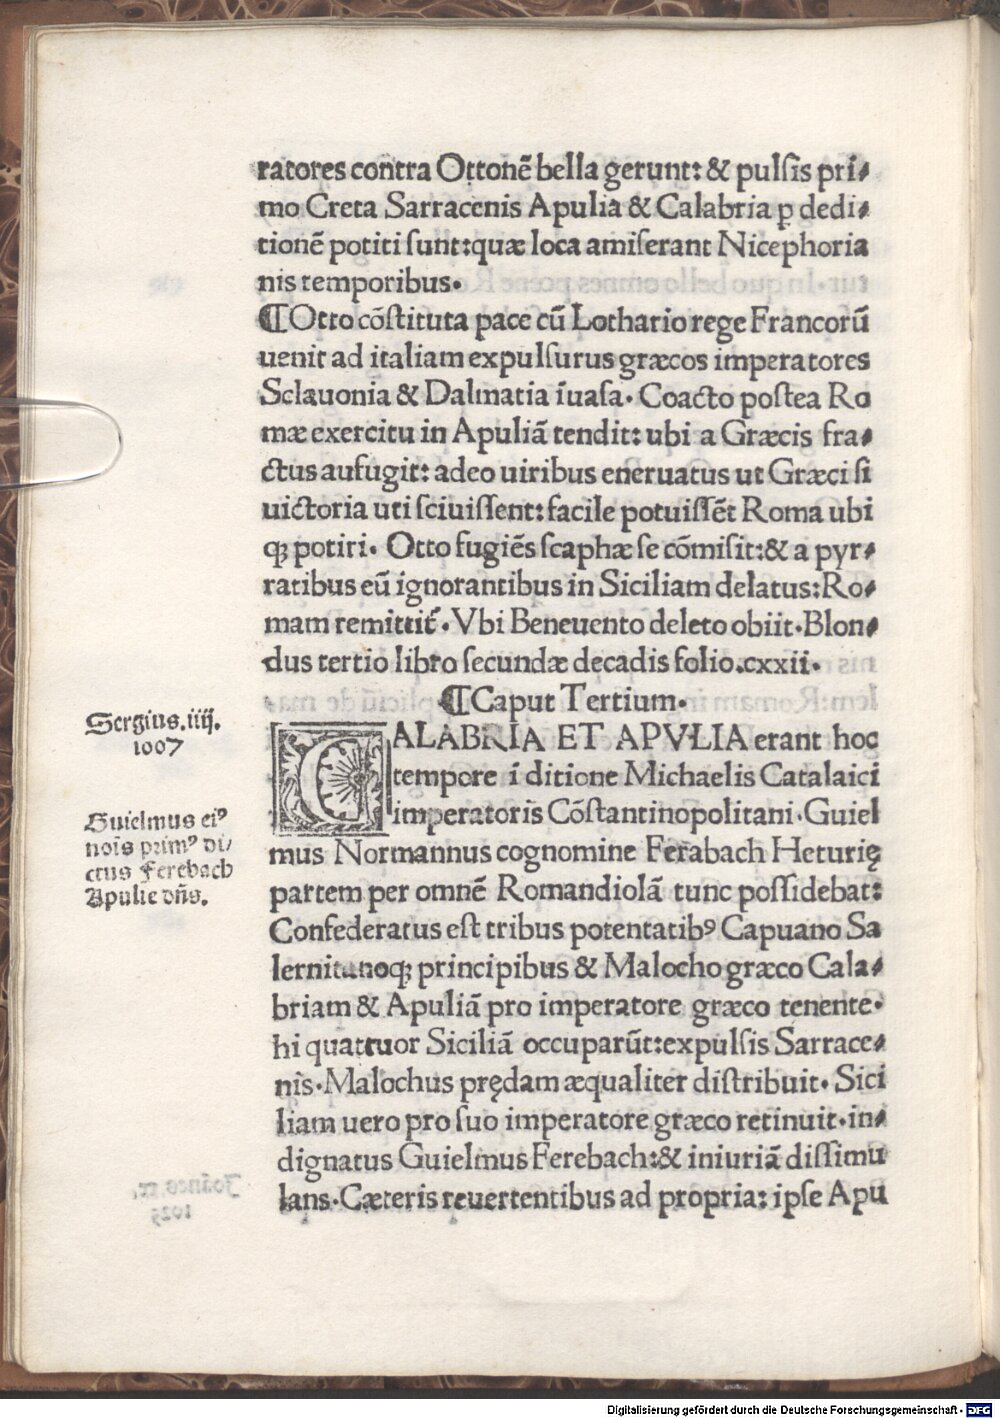 ratores contra Ottonē bella gerunt: & pulſis pri⸗
mo Creta Sarracenis Apulia & Calabria ꝑ dedi⸗
tionē potiti ſunt:quæ loca amiſerant Nicephoria
nis temporibus.
¶Otto cōſtituta pace cū Lothario rege Francorū
uenit ad italiam expulſurus græcos imperatores
Sclauonia & Dalmatia īuaſa. Coacto poſtea Ro
mæ exercitu in Apuliā tendit: ubi a Græcis fra⸗
ctus aufugit: adeo uiribus eneruatus ut Græci ſi
uictoria uti ſciuiſſent: facile potuiſſēt Roma ubi
qꝫ potiri. Otto fugiēs ſcaphæ ſe cōmiſit:& a pyr⸗
ratibus eū ignorantibus in Siciliam delatus: Ro⸗
mam remittit̄. Vbi Beneuento deleto obiit. Blon⸗
dus tertio libro ſecundæ decadis folio.cxxii.
¶Caput Tertium.
Sergius.iiij.
1007
CALABRIA ET APVLIA erant hoc
tempore ī ditione Michaelis Catalaici
imperatoris Cōſtantinopolitani. Guiel
Guielmus eiꝰ
noīs primꝰ di/
ctus Ferebach
Apulie dn̄s.
mus Normannus cognomine Ferabach Heturię
partem per omnē Romandiolā tunc poſſidebat:
Confederatus eſt tribus potentatibꝰ Capuano Sa
lernitanoqꝫ principibus & Malocho græco Cala⸗
briam & Apuliā pro imperatore græco tenente.
hi quattuor Siciliā occuparūt: expulſis Sarrace⸗
nis. Malochus prędam æqualiter diſtribuit. Sici
liam uero pro ſuo imperatore græco retinuit. in⸗
dignatus Guielmus Ferebach:& iniuriā diſſimu
lans. Cæteris reuertentibus ad propria: ipſe Apu
Digitalisierung gefördert durch die Deutsche Forschungsgemeinschaft - DFG